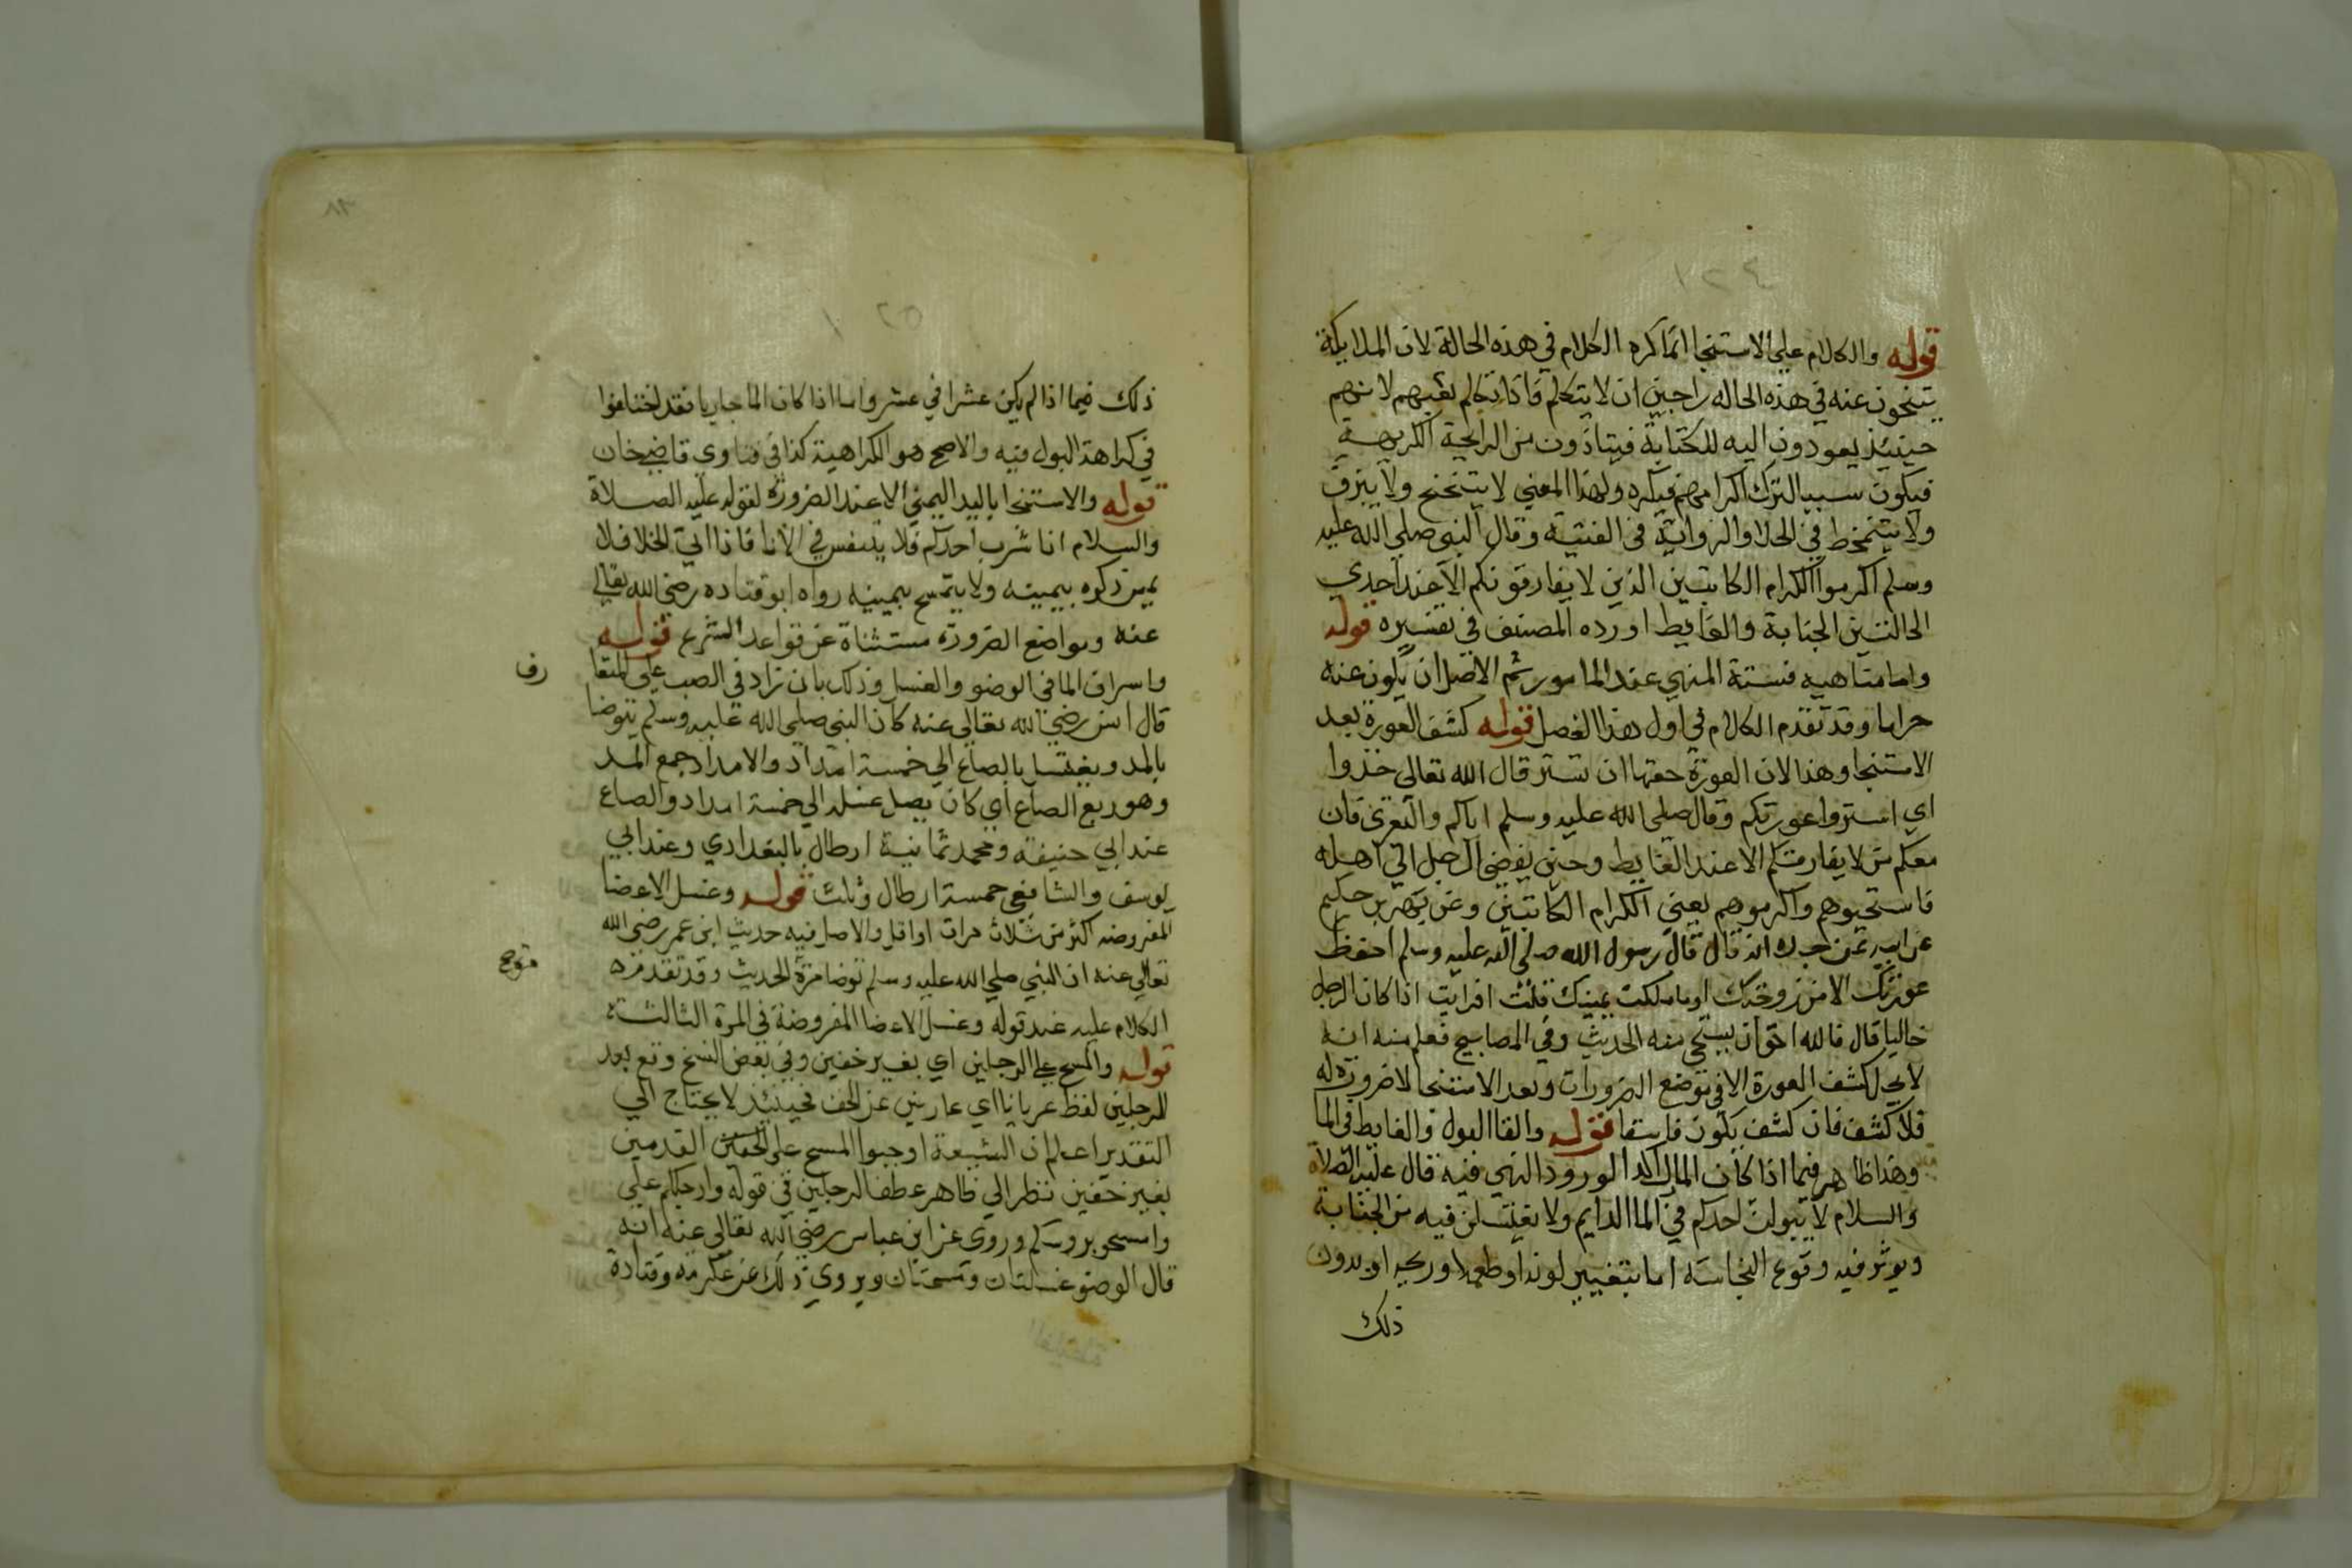 قوله والكلام علي الاستنجا انما كره الكلام في هذه الحالة لان الملايكة
يتنحون عنه في هذه الحاله راجين ان لا يتكلم فاذا تكلم تعبهم لانهم
حينيذ يعودون اليه للكتابة فيتاذون من الرايحة الكريهة
فيكون سببا لترك اكرامهم فيكره ولهذا المعني لا يتنحنح ولا يبزق
ولا يتمخط في الخلا والرواية في القنية وقال النبي صلي الله عليه
وسلم اكرموا الكرام الكاتبين الذين لا يفارقونكم الا عند احدي
الحالتين الجنابة والغايط اورده المصنف في تفسيره قوله
واما مناهيه فستة المنهي عند المامور ثم الاصل ان يكون عنه
حراما وقد تقدم الكلام في اول هذا الفصل قوله كشف العورة بعد
الاستنجا وهذا لان العورة حقها ان تستر قال الله تعالي خذوا
اي استروا عورتكم وقال صلي الله عليه وسلم اياكم والتعري فان
معكم من لا يفارقكم الا عند الغايط وحين يفضي الرجل الي اهله
فاستحيوهم واكرموهم يعني الكرام الكاتبين وعن بهز بن حكيم
عن ابيه عن جده انه قال قال رسول الله صلي الله عليه وسلم احفظ
عورتك الا من زوجتك او ما ملكت يمينك قلت افرايت اذا كان الرجل
خاليا قال فالله احق ان يستحي منه الحديث وفي المصابيح فعلم منه انه
لا يحل كشف العورة الا في موضع الضرورات وبعد الاستنجا لا ضرورة له
فلا كشف فان كشف يكون فاسقا قوله والقا البول والغايط في الما
وهذا ظاهر فيما اذا كان الما راكدا لورود النهي فيه قال عليه الصلاة
والسلام لا يبولن احدكم في الما الدايم ولا يغتسلن فيه من الجنابة
ويوثر فيه وقوع النجاسة اما بتغيير لونه او طعمه او ريحه او بدون
ذلك
ذلك فيما اذا لم يكن عشرا في عشر واما اذا كان الما جاريا فقد اختلفوا
في كراهة البول فيه والاصح هو الكراهية كذا في فتاوي قاضي خان
قوله والاستنجا باليد اليمني الا عند الضرورة لقوله عليه الصلاة
والسلام اذا شرب احدكم فلا يتنفس في الانا فاذا اتي الخلا فلا
يمس ذكره بيمينه ولا يتمسح بيمينه رواه ابو قتاده رضي الله تعالي
عنه ومواضع الضرورة مستثناة عن قواعد الشرع قوله
واسراف الما في الوضو والغسل وذلك بان تزاد في الصب علي المتعا
رف
قال انس رضي الله تعالي عنه كان النبي صلي الله عليه وسلم يتوضا
بالمد ويغتسل بالصاع الي خمسة امداد والامداد جمع المد
وهو ربع الصاع اي كان يصل غسله الي خمسة امداد والصاع
عند ابي حنيفة ومحمد ثمانية ارطال بالبغدادي وعند ابي
يوسف والشافعي خمسة ارطال وثلث قوله وغسل الاعضا
المفروضه اكثر من ثلاث مرات او اقل والاصل فيه حديث ابن عمر رضي الله
تعالي عنه ان النبي صلي الله عليه وسلم توضا مرة الحديث وقد تقدم
الكلام عليه عند قوله وغسل الاعضا المفروضة في المرة الثالثة
قوله والمسح علي الرجلين اي بغير خفين وفي بعض النسخ وقع بعد
الرجلين لفظ عريانا اي عاريين عن الخف فحينيذ لا يحتاج الي
التقدير اعلم ان الشيعة اوجبوا المسح علي الخفين القدمين
بغير خفين نظرا الي ظاهر عطف الرجلين في قوله وارجلكم علي
وامسحو بروسكم وروي عن ابن عباس رضي الله تعالي عنه انه
قال الوضو غسلتان ومسحتان ويروي ذلك عن عكرمه وقتادة